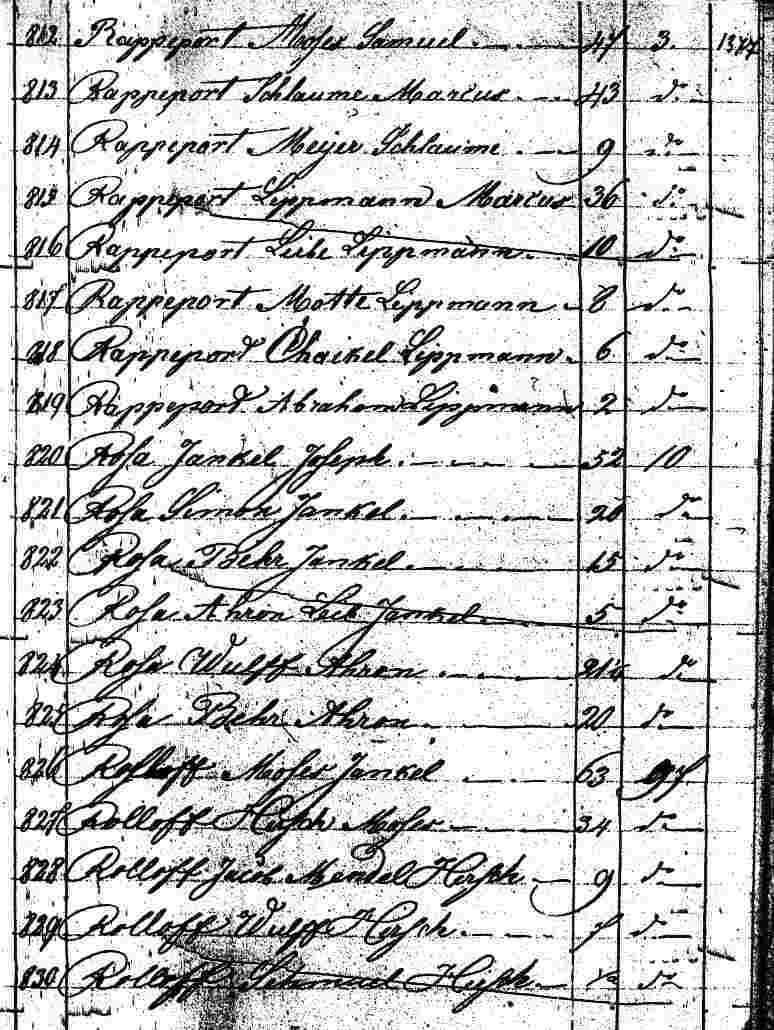 812 Rappeport Moses Samuel 47 3. 1377
813 Rappeport Schlaume Marcus 43 do
814 Rappeport Meijer Schlaume 9 do
815 Rappeport Lippmann Marcus 36 do
816 Rappeport Leibe Lippmann 10 do
817 Rappeport Motte Lippmann 8 do
818 Rappepord Chaikel Lippmann 6 do
819 Rappepord Abraham Lippmann 2 do
820 Rosa Jankel Joseph 52 10
821 Rosa Simon Jankel do
822 Rosa Behr Jankel 15 do
823 Rosa Ahron Leib Jankel 5 do
824 Rosa Wulff Ahron do
825 Rosa Behr Ahron 20 do
826 Rolloff Moses Jankel 63 97
827 Rolloff Hirsch Moses 34 do
828 Rolloff Jacob Mendel Hirsch 9 do
829 Rolloff Wulff Hirsch 7 do
830 Rolloff Schmuel Hirsch do